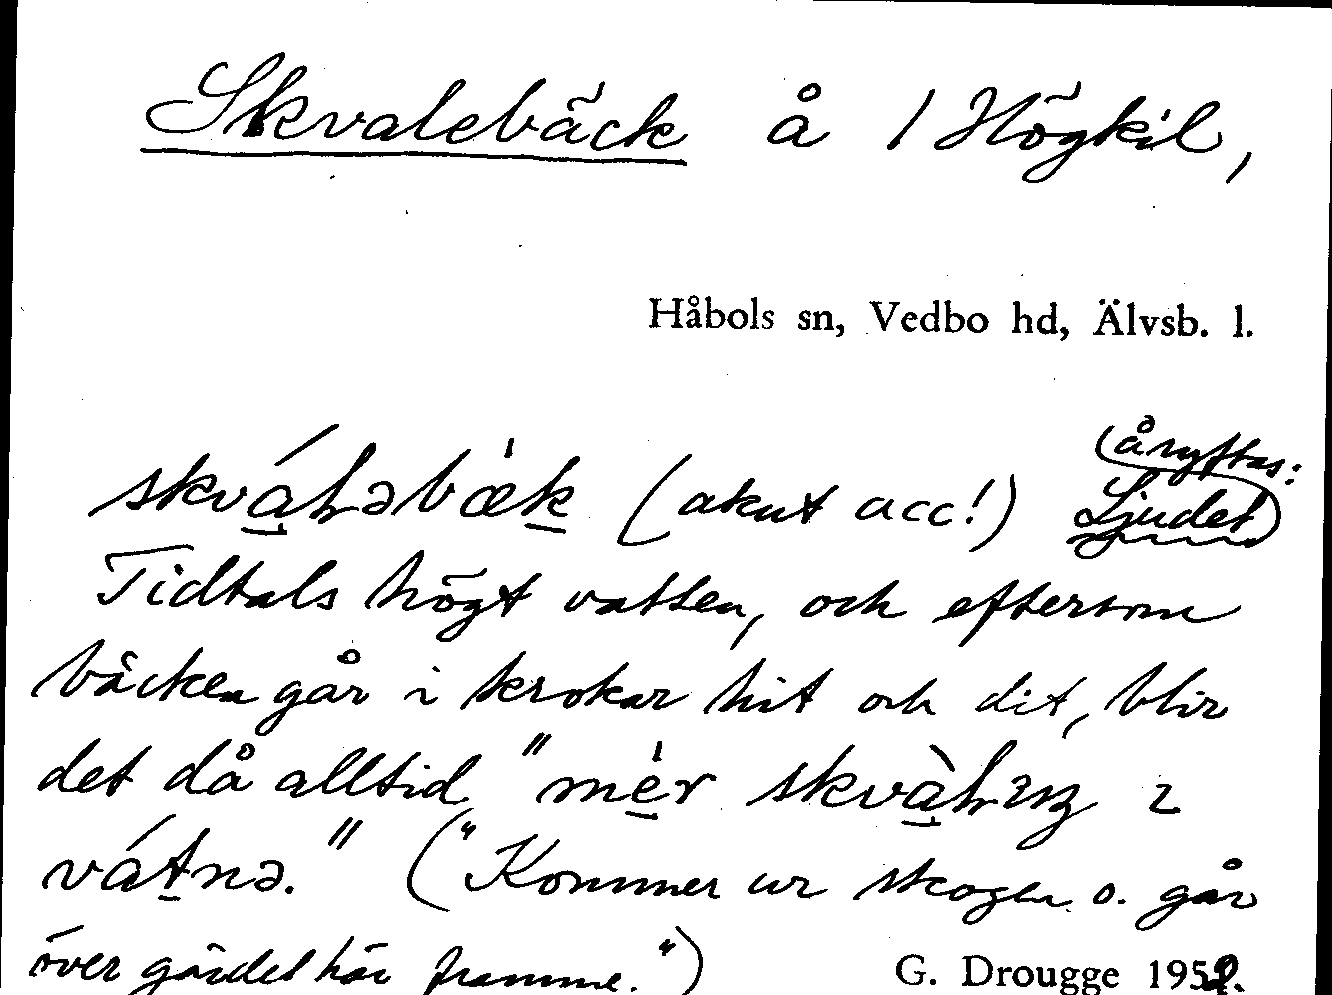 Skvalebäck å / Högkil,
Håbols sn, Vedbo hd, Älvsb. l.
(åsyftas:
skváꞎəbæ̀k (akut acc!) Ljudet)
Tidtals högt vatten, och eftersom
bäcken går i krokar hit och dit, blir
det då alltid "mér skvàꞎıŋ ı
vátnə." ("Kommer ur skogen o. går
över gärdet här framme.")
G. Drougge 1952.